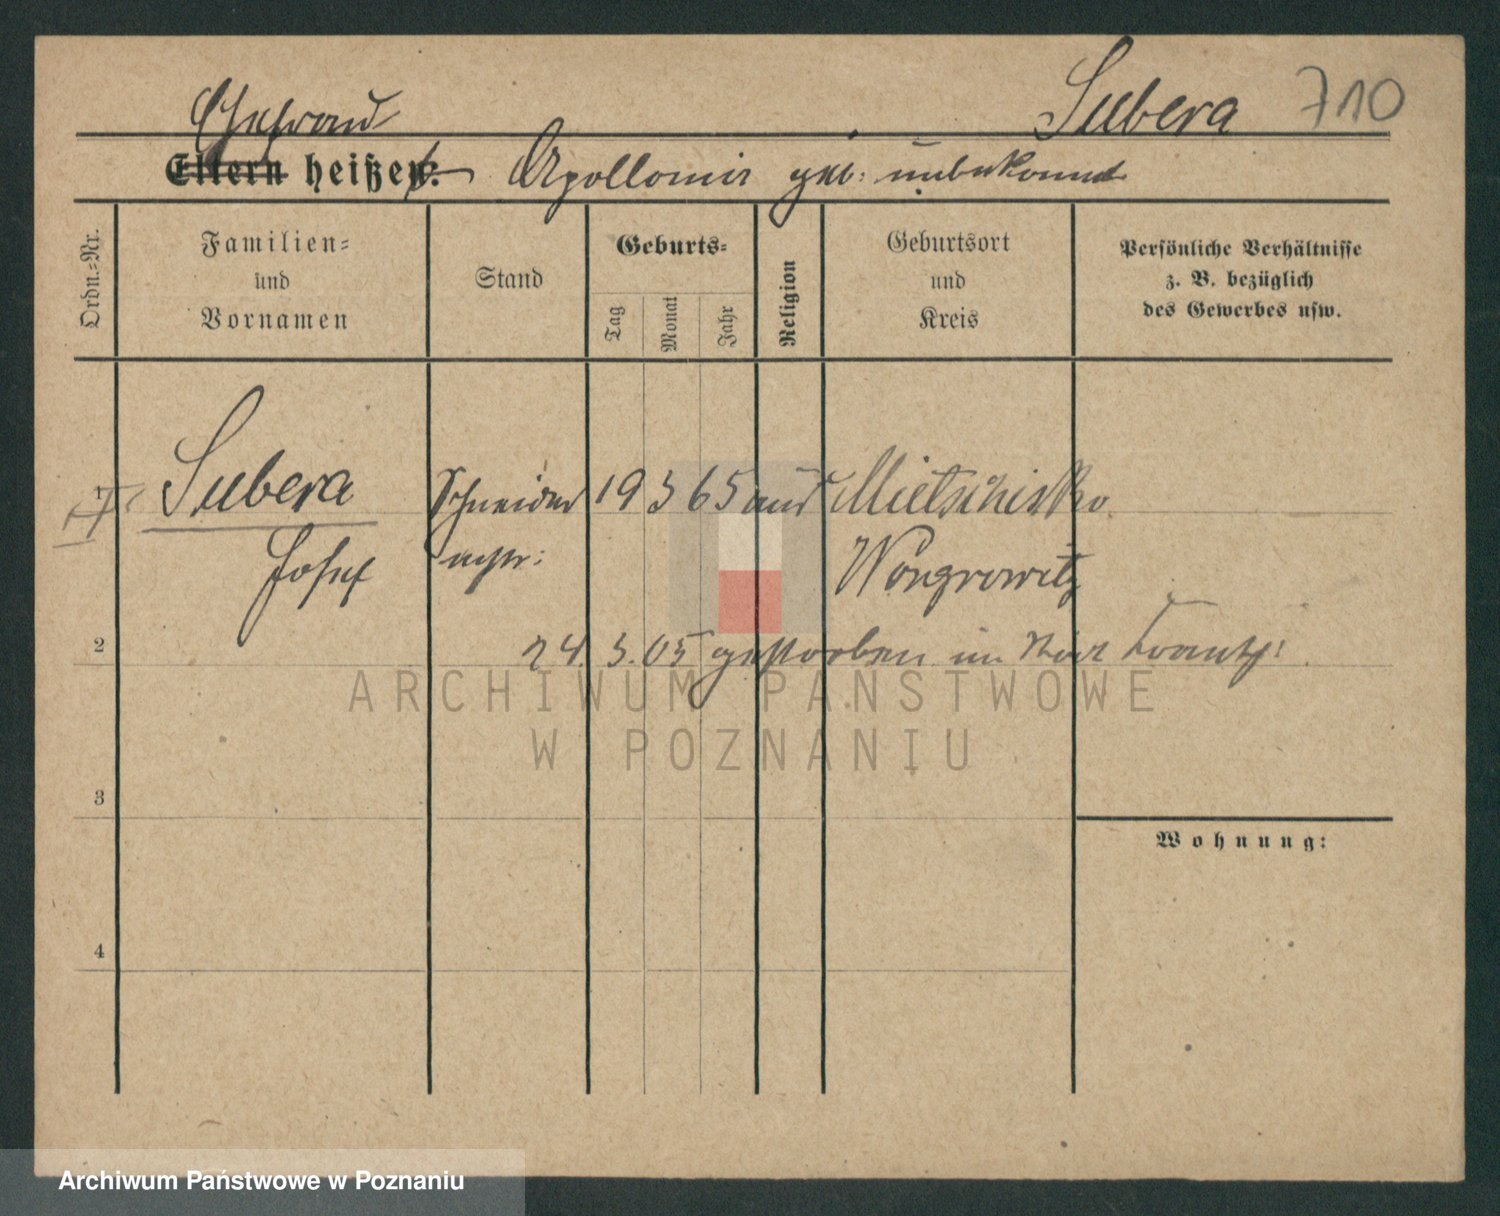 Subera 710
Ehefrau
Eltern heißen: Apollonia geb: unbekannt
Ordn.=Nr.
Familien=
und
Vornamen
Stand
Geburts=
Tag
Monat
Jahr
Religion
Geburtsort
und
Kreis
Persönliche Verhältnisse
z. B. bezüglich
des Gewerbes usw.
1
Subera Schneider 19 3 65 aus Mietschisko
Josef Wongrowitz
2
24. 3. 05 gestorben im
ARCHIWUM PAŃSTWOWE
W POZNANIU
3
Wohnung:
4
Archiwum Państwowe w Poznaniu